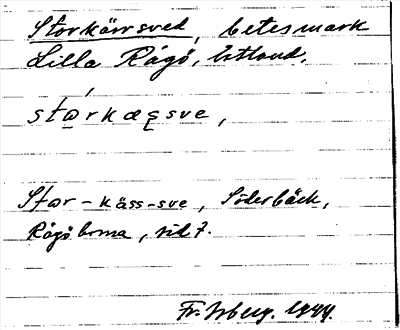 Storkärrsved, betesmark
Lilla Rågö, Estland.
størkæsve,
Stor-käss-sve, Söderbäck,
Rågöborna, sid 7.
Fr. Isberg. 1944.